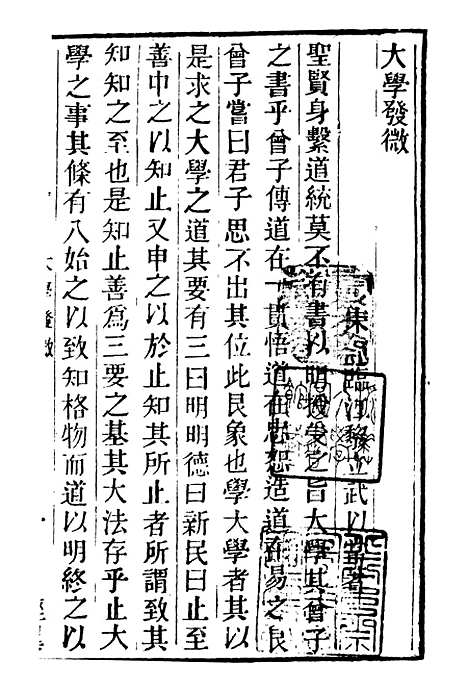 大學發微
臨江黎立武以
聖賢身繫道統莫不有書以明授受之旨大學其曾子
之書乎曾子傳道在一貫悟道在忠恕造道在易之艮
曾子嘗曰君子思不出其位此艮象也學大學者其以
是求之大學之道其要有三曰明明德曰新民曰止至
善申之以知止又申之以於止知其所止者所謂致其
知知之至也是知止善爲三要之基其大法存乎止大
學之事其條有八始之以致知格物而道以明終之以
大學發微